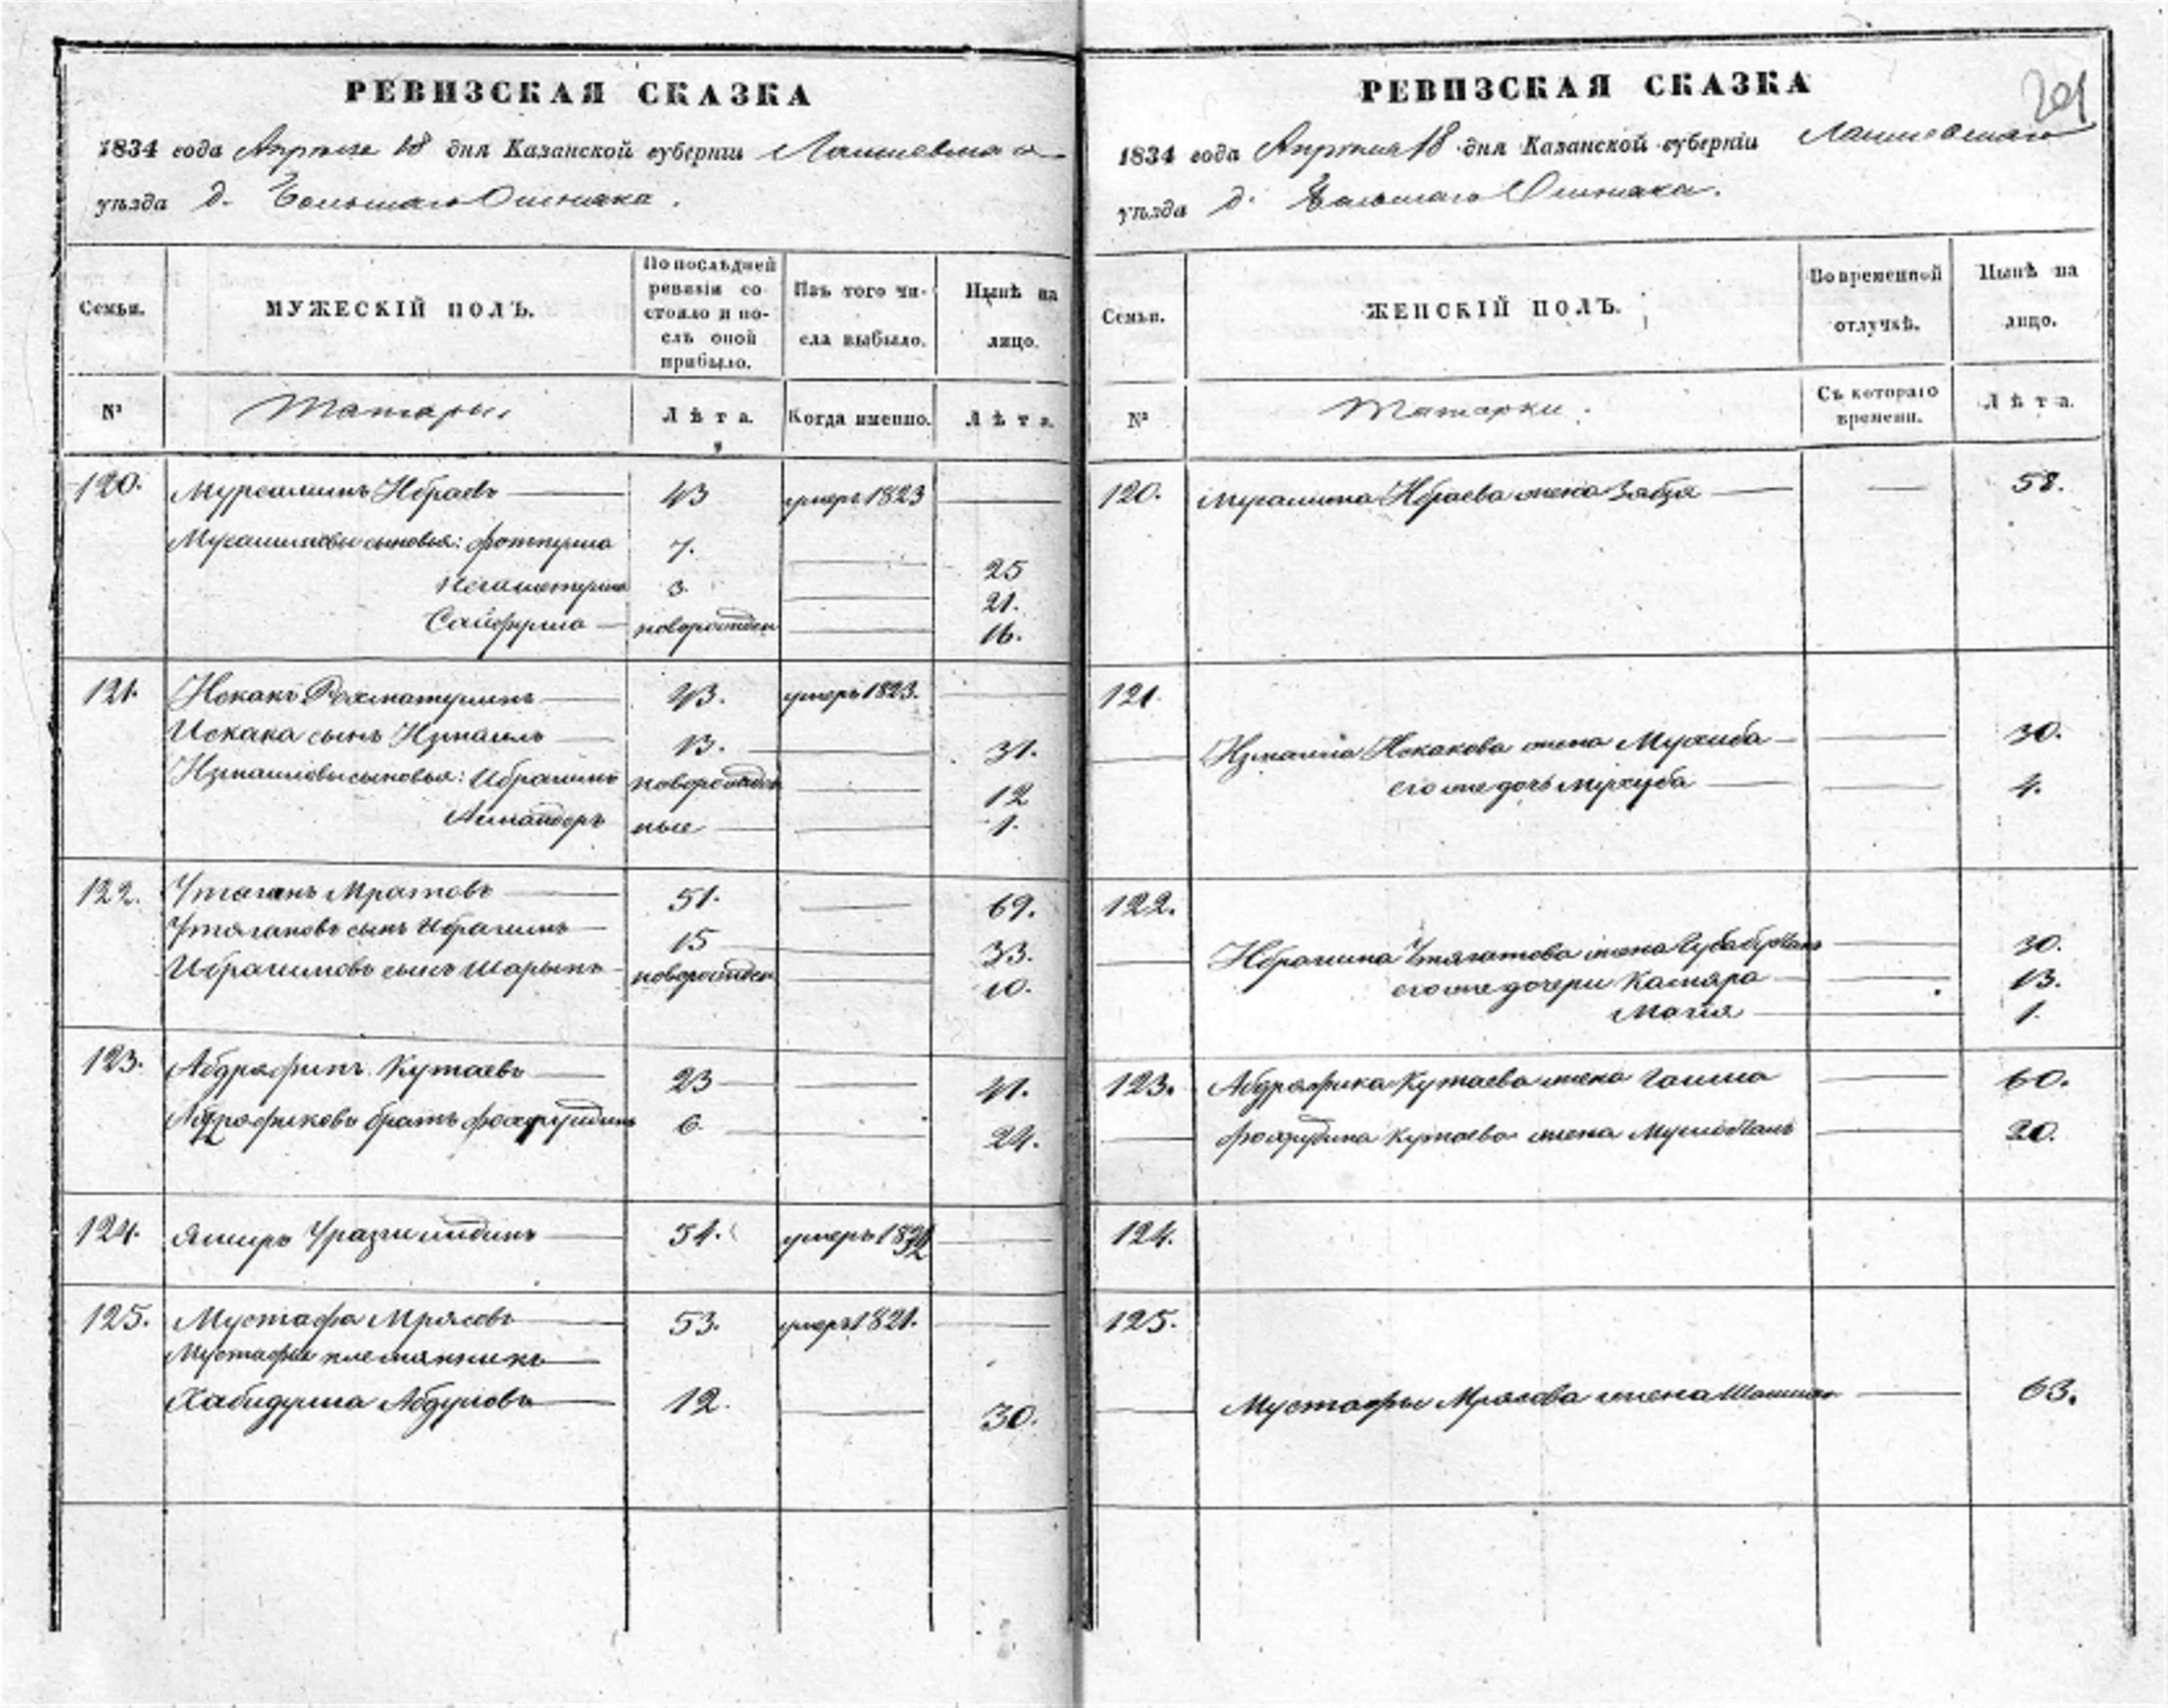 РЕВИЗСКАЯ СКАЗКА
1834 года Апреля 18 дня Казанской губерніи Лаишевскаго
уѣзда д. Большаго Ошняка.
Семьи. МУЖЕСКІЙ ПОЛЪ. По послѣдней ревизіи состояло и послѣ оной прибыло. Изъ того числа выбыло. Нынѣ на лицо.
№ Татары. Лѣта. Когда именно. Лѣта.
120. Мурсалимъ Ибраевъ 43 умеръ 1823
Мусалимовы сыновья: Фаткулла 7. 25
Негаметулла 3. 21.
Сайфулла новорожден 16.
121. Искакъ Рахматуллинъ 43. умеръ 1823.
Искака сынъ Измаилъ 13. 31.
Измаиловы сыновья: Ибрагимъ новорожден 12
ные 1.
122. Утяганъ Мратовъ 51. 69.
Утягановъ сынъ Ибрагимъ 15 33.
Ибрагимовъ сынъ Шарыпъ новорожден 10.
123. Абдрафикъ Кутаевъ 23 41.
Абдрафиковъ братъ Фахрудинъ 6. 24.
124. Ямиръ 51. умеръ
125. Мустафа Мрясовъ 53. умеръ 1821.
Мустафы племянникъ
Хабидулла Абдуловъ 12. 30.
201
РЕВИЗСКАЯ СКАЗКА
1834 года Апреля 18 дня Казанской губерніи Лаишевскаго
уѣзда д. Большаго Ошняка.
Семьи. ЖЕНСКІЙ ПОЛЪ. Во временной отлучкѣ. Нынѣ на лицо.
№ Татарки. Съ котораго времени. Лѣта.
120. Мусалима Ибраева жена Зябдя 58.
121.
Измаила Искакова жена Мухиба 30.
его же дочь Мухуба 4.
122.
Ибрагима Утяганова жена 30.
его же дочери Камяра 13.
1.
123. Абдрафика Кутаева жена Галима 60.
Фахрудина Кутаева жена 20.
124.
125.
Мустафы Мрясова жена 63.